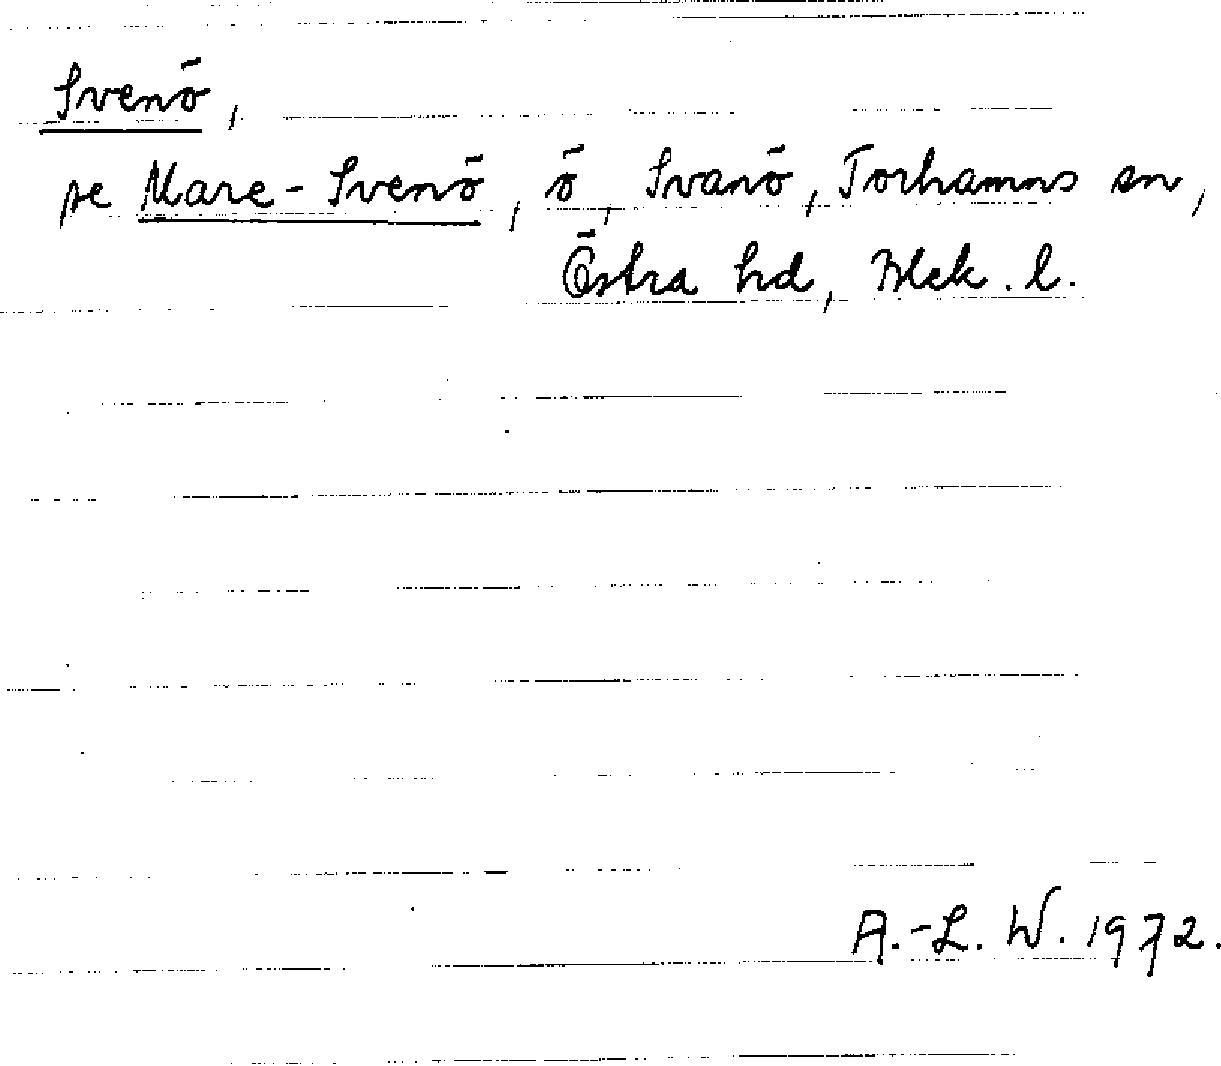 Svenö,
se Mare-Svenö, ö, Svanö, Torhamns sn,
Östra hd, Blek. l.
A.-L. W. 1972.